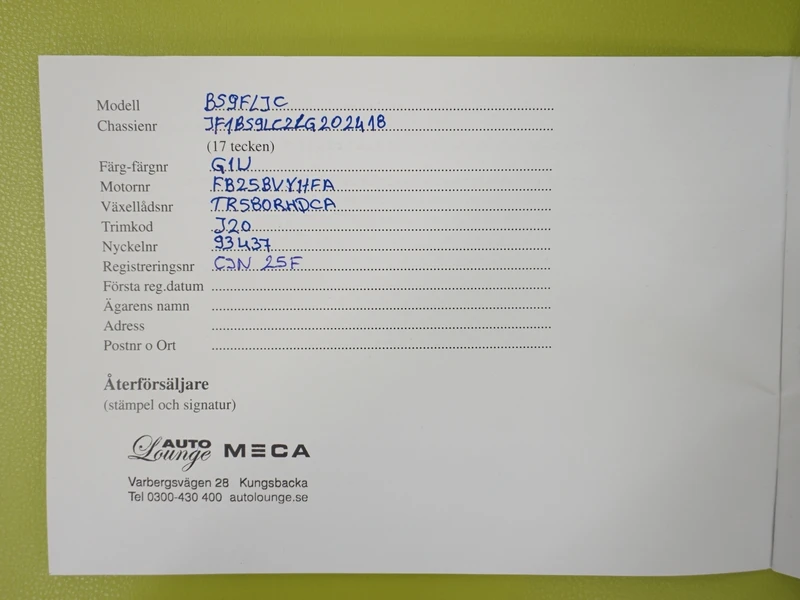 Modell BS9FLJC
Chassienr JF1BS9LC2LG202418
(17 tecken)
Färg-färgnr G1U
Motornr FB25BVYHFA
Växellådsnr TR580RHDCA
Trimkod J20
Nyckelnr 93437
Registreringsnr CJN 25F
Första reg.datum
Ägarens namn
Adress
Postnr o Ort
Återförsäljare
(stämpel och signatur)
AUTO Lounge MECA
Varbergsvägen 28 Kungsbacka
Tel 0300-430 400 autolounge.se